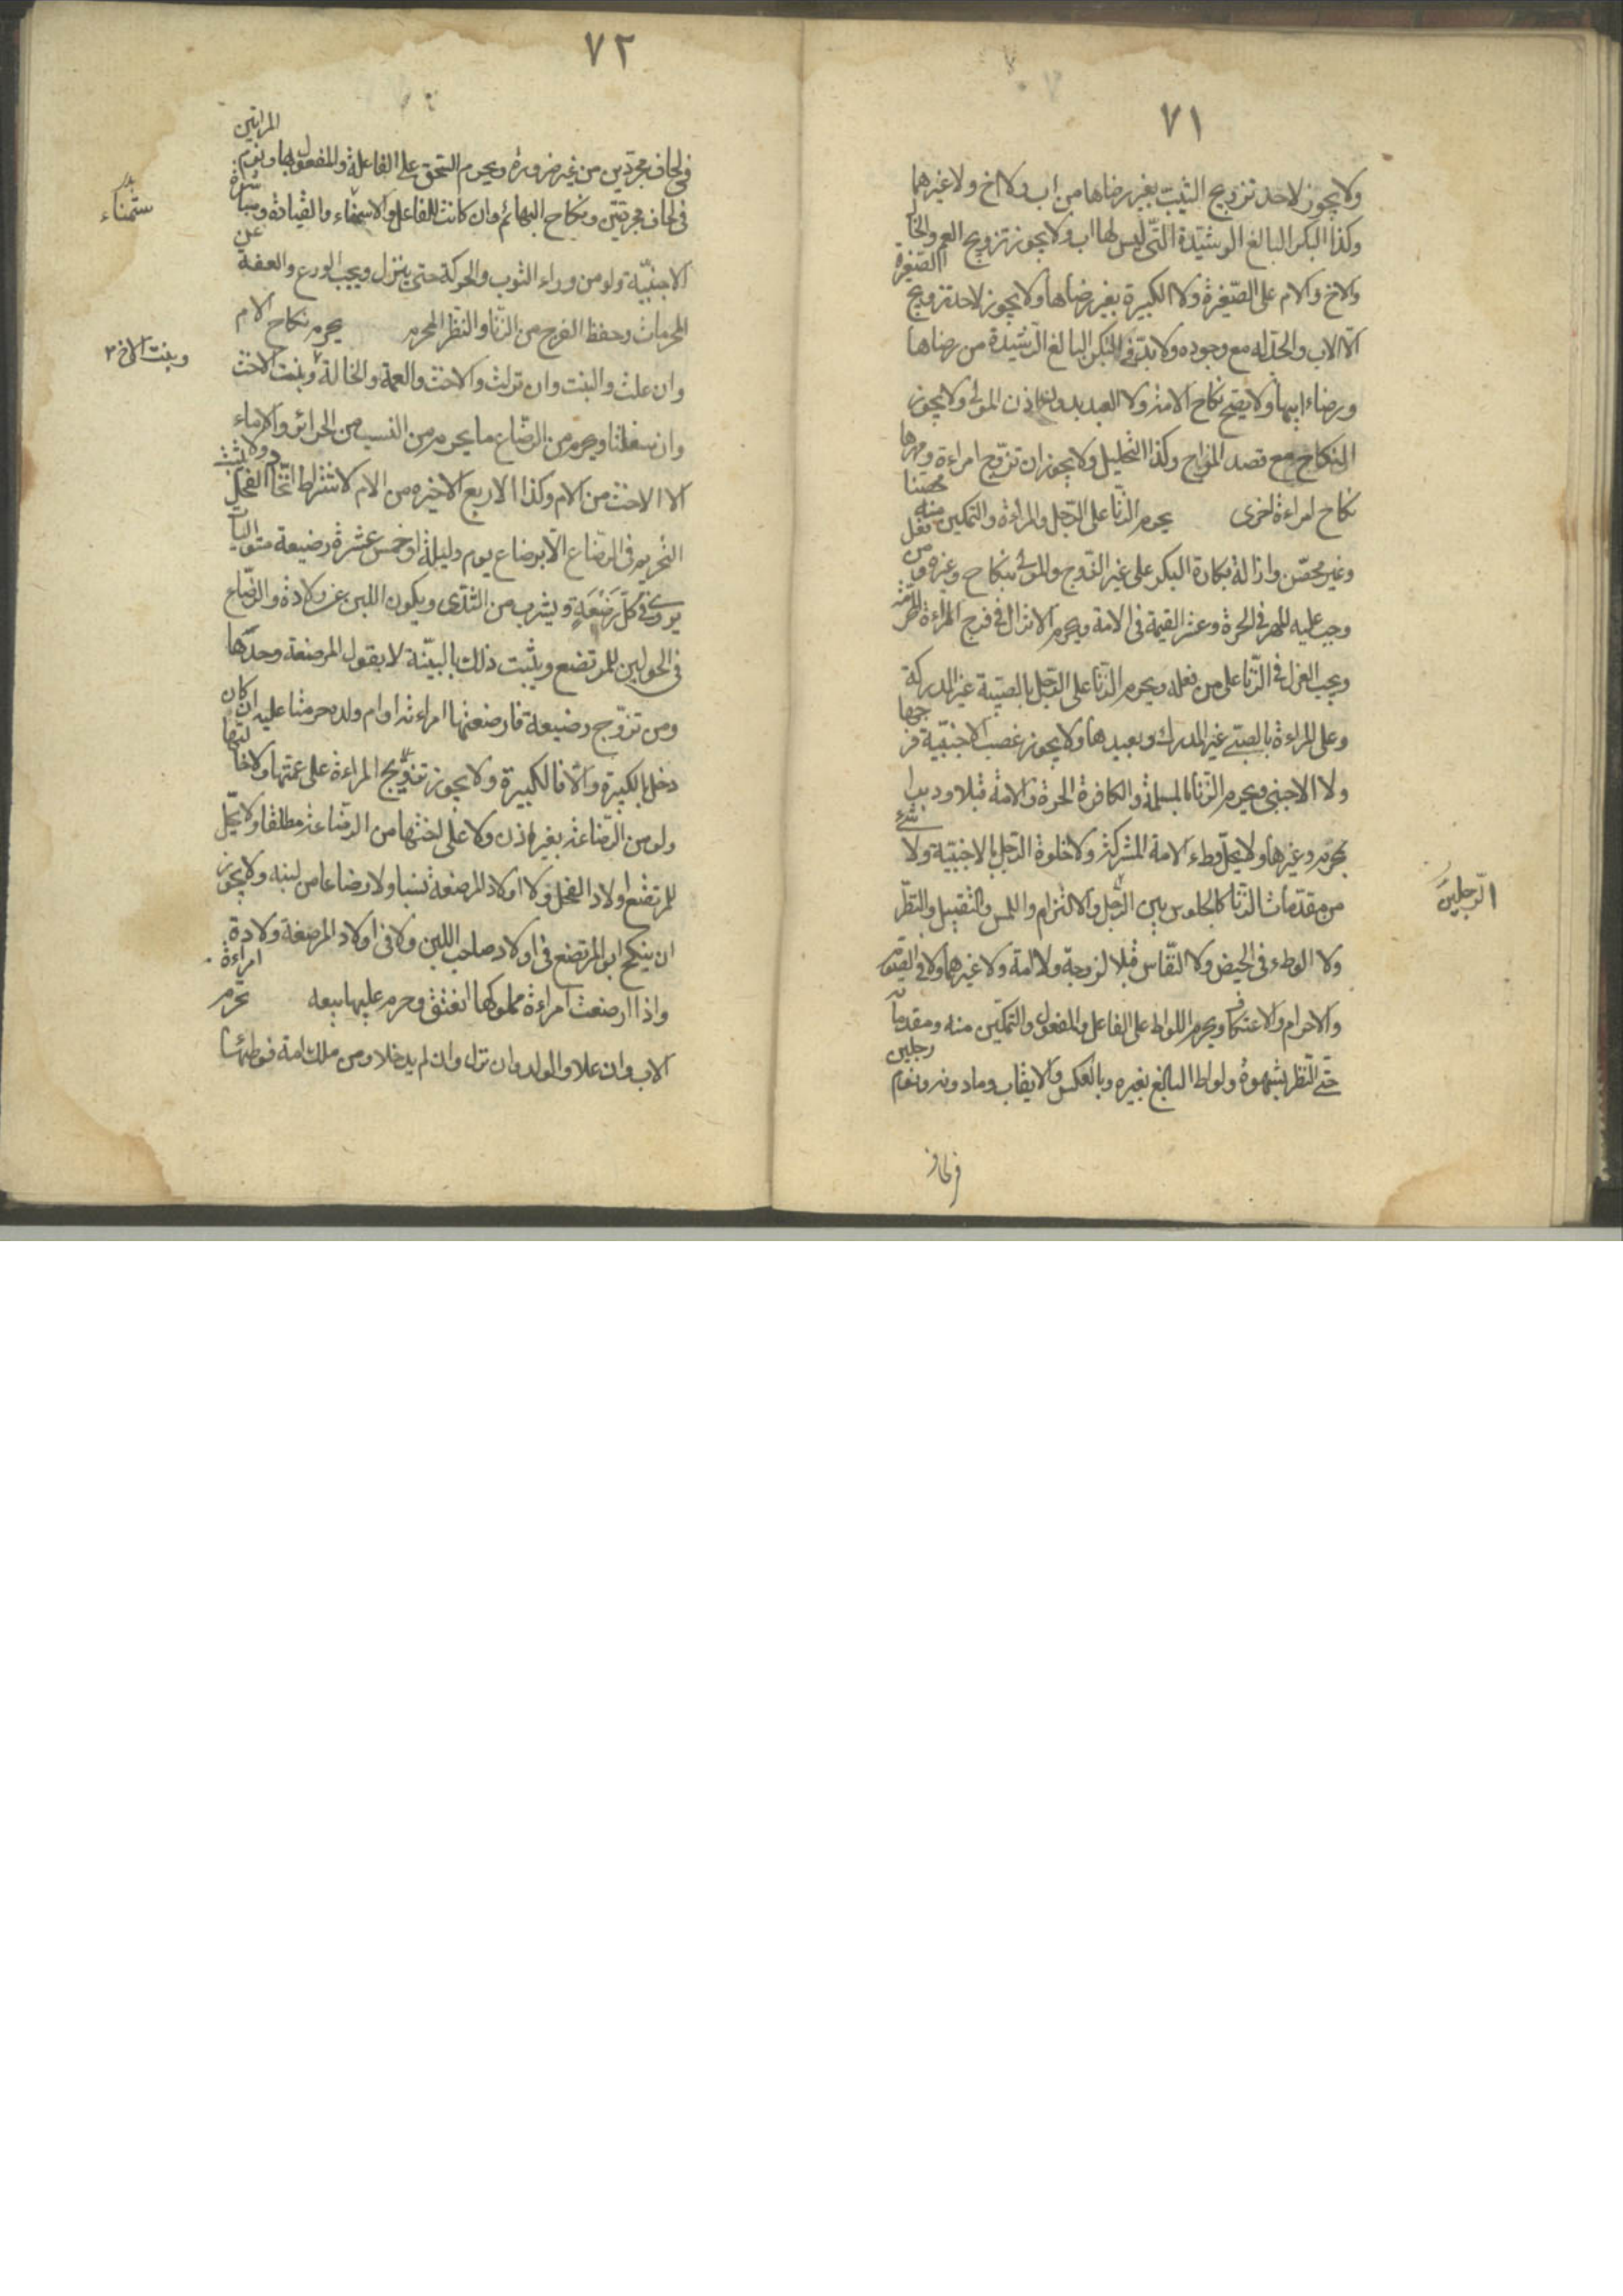 ٧١
ولا يجوز لاحد تزويج الثيب بغير رضاها من اب ولا اخ ولا غيرهما
وكذا البكر البالغ الرشيدة التي ليس لها اب ولا يجوز تزويج العم والخال
والاخ والام على الصغيرة ولا الكبيرة بغير رضاها ولا يجوز لاحد تزويج الصغيرة
الا الاب والجد له مع وجوده ولا بد في البكر البالغ الرشيدة من رضاها
ورضاء ابيها ولا يصح نكاح الامة ولا العبد بدون اذن المولى ولا يجوز
النكاح مع قصد المزاح وكذا التحليل ولا يجوز ان تزوج امراءة ومهرها
نكاح امراءة اخرى يحرم الزنا على الرجل والمراءة والتمكين منه محصنا
وغير محصن وازالة بكارة البكر على غير الزوج والمولى بنكاح وغيره من فعل
وجب عليه المهر في الحرة وعشر القيمة في الامة ويحرم الانزال في فرج المراءة المحرمة
ويجب العزل في الزنا على من فعله ويحرم الزنا على الرجل بالصبية غير المدركة
وعلى المراءة بالصبي غير المدرك وبعبدها ولا يجوز غصب الاجنبية فرجها
ولا الاجنبي ويحرم الزنا بالمسلمة والكافرة الحرة والامة قبلا ودبرا
بمحرم وغيرها ولا يحل وطء الامة المشركة ولا خلوة الرجل بالاجنبية ولا شيء
من مقدمات الزنا كالجلوس بين الرجل والالتزام واللمس والتقبيل والنظر
الرجلين
ولا الوطء في الحيض ولا النفاس قبلا لزوجة ولا امة ولا غيرهما ولا في الصوم
والاحرام والاعتكاف ويحرم اللواط على الفاعل والمفعول والتمكين منه ومقدماته
حتى النظر بشهوة ولواط البالغ بغيره وبالعكس والايقاب وما دونه ونوم رجلين
في لحاف
٧٢
في لحاف مجردين من غير ضرورة ويحرم السحق على الفاعلة والمفعول بها ونوم المراتين
في لحاف مجردتين ونكاح البهائم وان كانت للفاعل والاستمناء والقيادة ومباشرة
ستمناء
الاجنبية ولو من وراء الثوب والحركة حتى ينزل ويجب الورع والعفة عن
المحرمات وحفظ الفرج من الزنا والنظر المحرم يحرم نكاح الام
وان علت والبنت وان نزلت والاخت والعمة والخالة وبنت الاخت
وبنت الاخ
وان سفلتا ويحرم من الرضاع ما يحرم من النسب من الحرائر والاماء
الا الاخت من الام وكذا الاربع الاخيره من الام لاشتراط اتحاد الفحل ولا يثبت
التحريم في الرضاع الا برضاع يوم وليلة او خمس عشرة رضيعة متواليات
يروى في كل رضعة ويشرب من الثدى ويكون اللبن عن ولادة والرضاع
في الحولين للمرتضع ويثبت ذلك بالبينة لا بقول المرضعة وحدها
ومن تزوج رضيعة فارضعتها امراءته او ام ولده حرمتا عليه ان كان
دخل بالكبيرة والا فالكبيرة ولا يجوز تزويج المراءة على عمتها ولا خالتها
ولو من الرضاعة بغير اذن ولا على اختها من الرضاعة مطلقا ولا يحل
للمرتضع اولاد الفحل ولا اولاد المرضعة نسبا ولا رضاعا من لبنه ولا يجوز
ان ينكح ابو المرتضع في اولاد صاحب اللبن ولا في اولاد المرضعة ولادة
واذا ارضعت امراءة مملوكها انعتق وحرم عليها بيعه تحرم امراءة
الاب وان علا والولد وان نزل وان لم يدخلا ومن ملك امة فوطئها